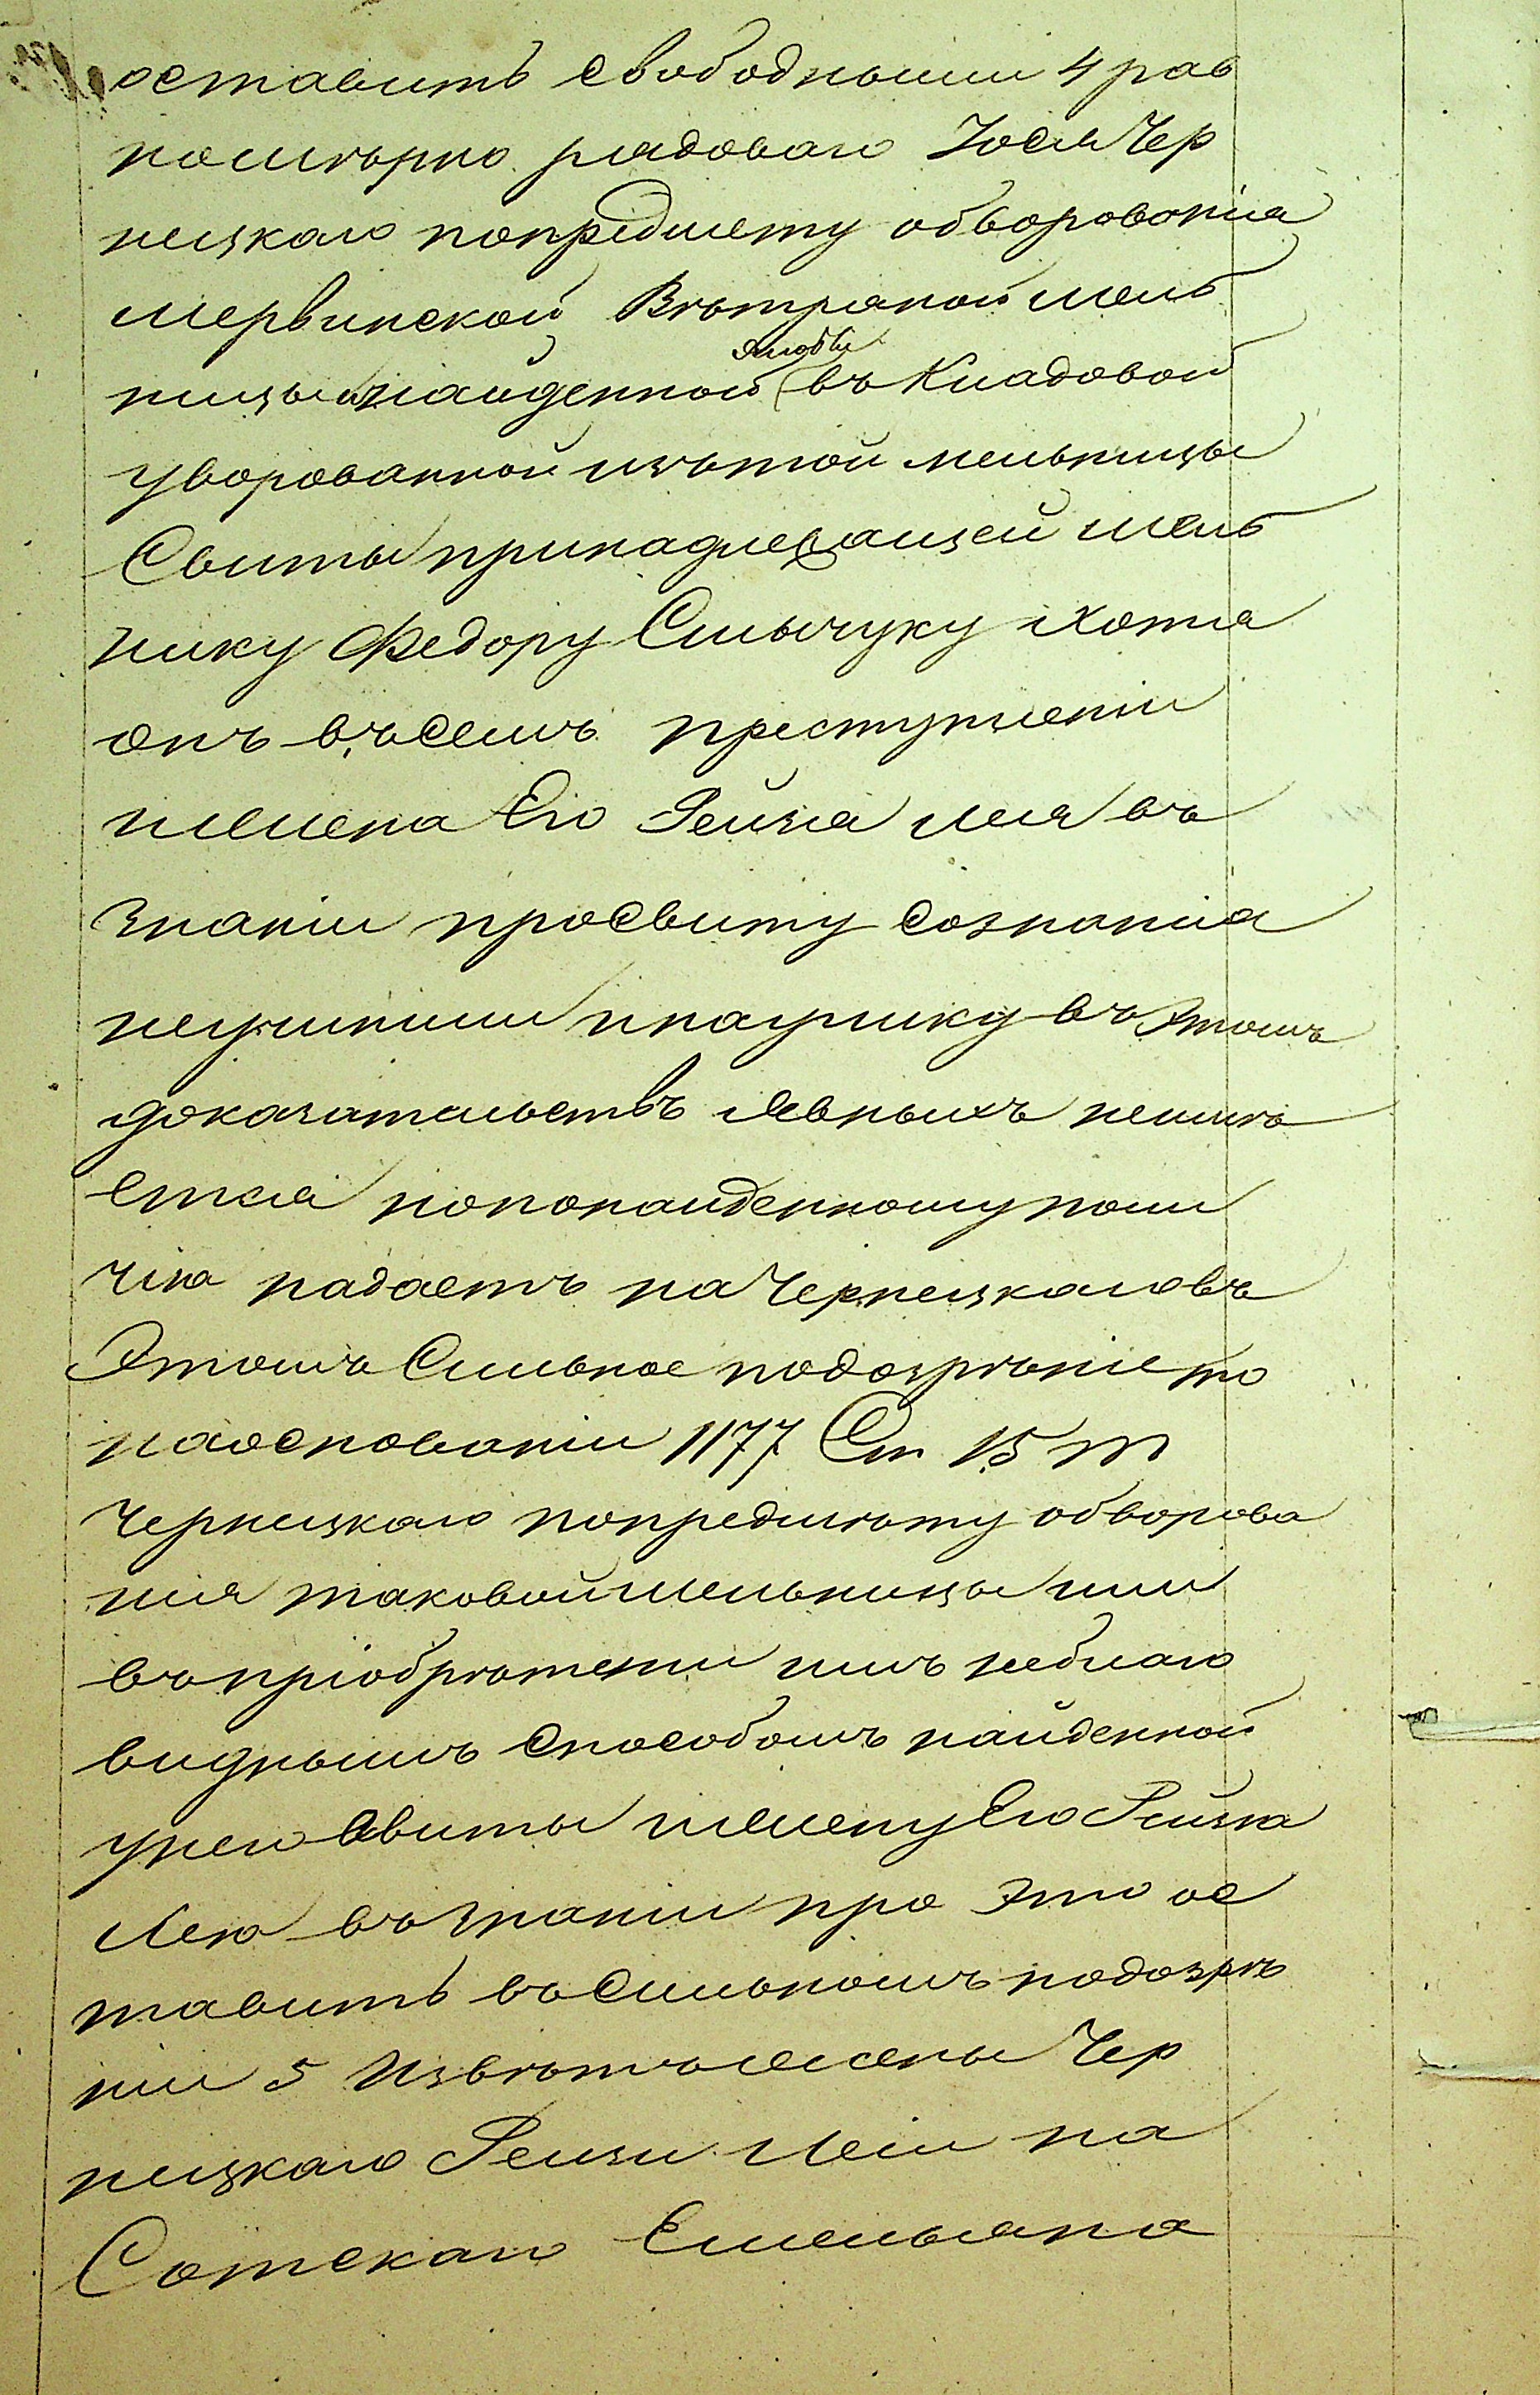 оставить свободными 4 рав
номѣрно рядоваго Іося Чер
нецкаго попредмету обворованія
мервинской Вѣтряной мель
ницы инайденной въ Кладовой
уворованной изътой мельницы
Свиты принадлежащей мель
нику Федору Смычуку ихотя
онъ въсемъ преступленіи
ижена Его Рейзя Лея въ
знаніи просвиту сознанія
неучинили инаулику въ этомъ
доказательствъ явныхъ неимѣ
ется нопонайденному поли
чію падаетъ на Чернецкаговъ
Этомъ Сильное подозрѣніе то
наоснованіи 1177 Ст 15 т
Чернецкаго попредмѣту обворова
нія таковой мельницы или
въпріобрѣтеніи имъ неблаго
виднымъ способомъ найденной
унего Свиты иЖену Его Рейзю
Лею въЗнаніи про это ос
тавить въСильномъ подозрѣ
ніи 5 Извѣтъ жены Чер
нецкаго Рейзи Леи на
Сотскаго Емельяна